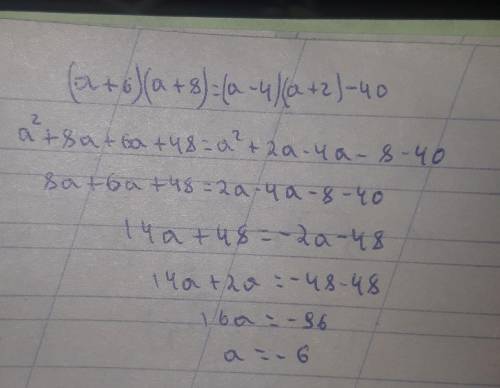 (a+6)(a+8)=(a-4)(a+2)-40
a²+8a+6a+48=a²+2a-4a-8-40
8a+6a+48=2a-4a-8-40
14a+48=-2a-48
14a+2a=-48-48
16a=-96
a=-6